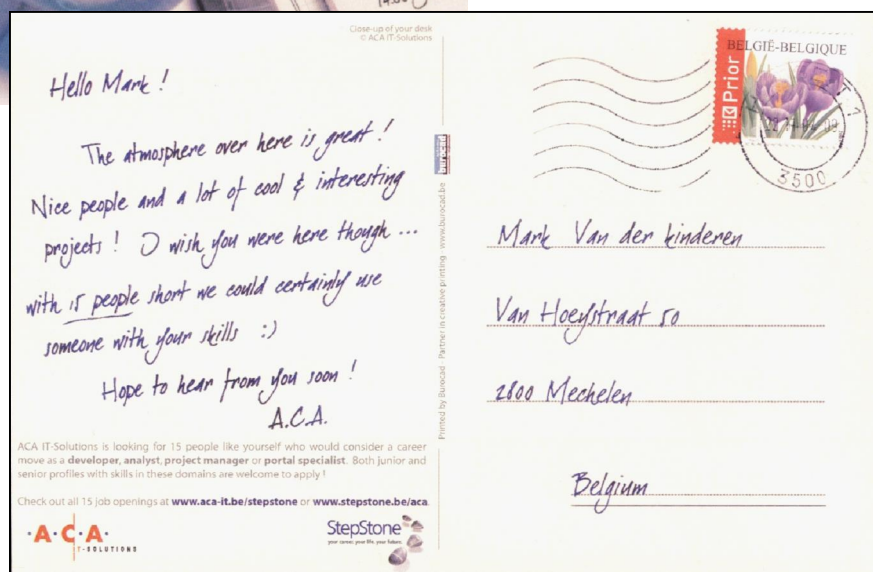 Close-up of your desk
© ACA IT-Solutions
Hello Mark !
The atmosphere over here is great !
Nice people and a lot of cool & interesting
projects ! I wish you were here though ...
with 15 people short we could certainly use
someone with your skills :)
Hope to hear from you soon !
A.C.A.
ACA IT-Solutions is looking for 15 people like yourself who would consider a career
move as a developer, analyst, project manager or portal specialist. Both junior and
senior profiles with skills in these domains are welcome to apply !
Check out all 15 job openings at www.aca-it.be/stepstone or www.stepstone.be/aca.
·A·C·A·
IT-SOLUTIONS
StepStone
your career, your life, your future.
Printed by Burocad - Partner in creative printing - www.burocad.be
BELGIË-BELGIQUE
Prior
3500
Mark Van der kinderen
Van Hoeystraat 50
2800 Mechelen
Belgium